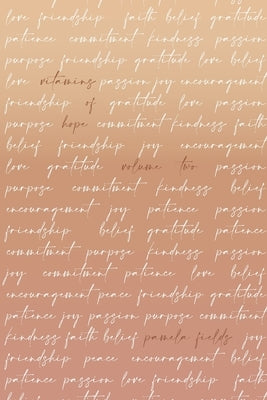 love friendship faith belief gratitude
patience commitment kindness passion
purpose friendship gratitude love belief
love vitamins passion joy encouragement
friendship of gratitude love passion
purpose hope commitment kindness faith
belief friendship joy encouragement
love gratitude volume two passion
purpose commitment kindness belief
encouragement joy patience passion
friendship belief gratitude
commitment purpose kindness passion
joy commitment patience love belief
encouragement peace friendship gratitude
patience joy passion purpose commitment
kindness faith belief pamela fields joy
friendship peace encouragement belief
patience passion love friendship faith